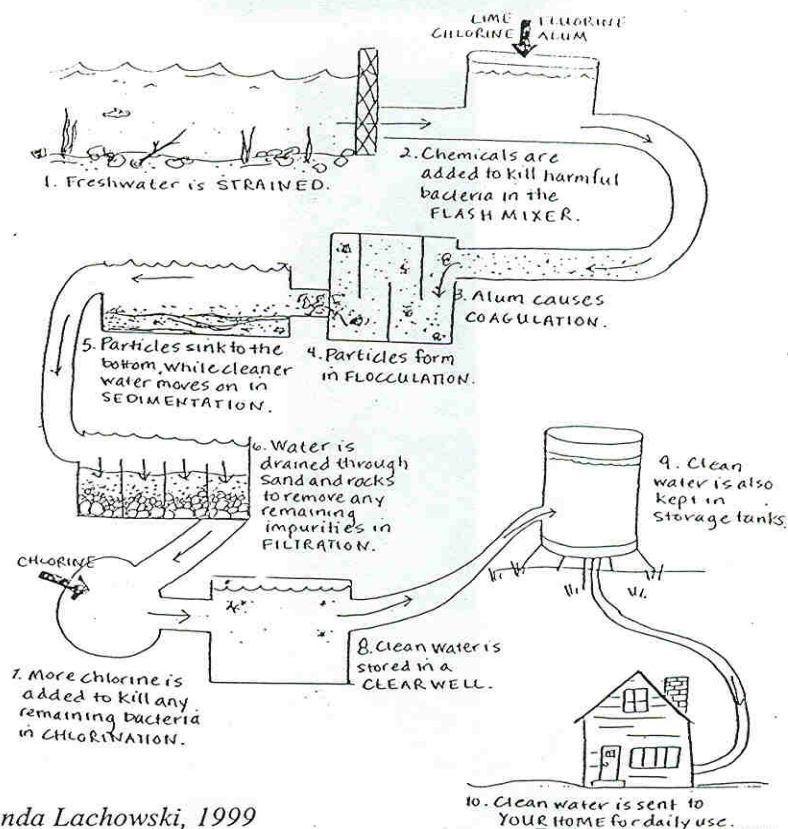 LIME FLUORINE
CHLORINE ALUM
1. Freshwater is STRAINED.
2. Chemicals are
added to kill harmful
bacteria in the
FLASH MIXER.
3. Alum causes
COAGULATION.
4. Particles form
in FLOCCULATION.
5. Particles sink to the
bottom, while cleaner
water moves on in
SEDIMENTATION.
6. Water is
drained through
sand and rocks
to remove any
remaining
impurities in
FILTRATION.
CHLORINE
7. More chlorine is
added to kill any
remaining bacteria
in CHLORINATION.
8. Clean water is
stored in a
CLEARWELL.
9. Clean
water is also
kept in
storage tanks.
10. Clean water is sent to
YOUR HOME for daily use.
nda Lachowski, 1999